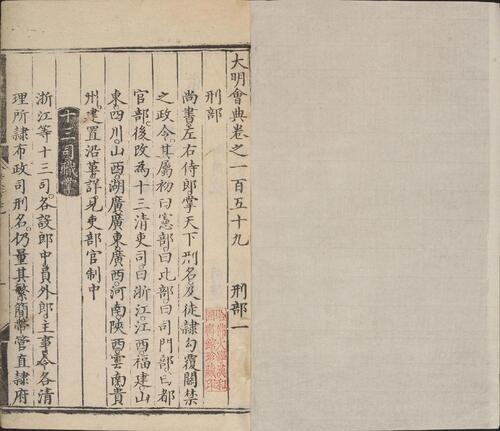 大明會典卷之一百五十九 刑部一
刑部
尚書左右侍郎掌天下刑名及徒隸勾覆關禁
之政令其屬初曰憲部曰比部曰司門部曰都
官部後改為十三清吏司曰浙江江西福建山
東四川山西湖廣廣東廣西河南陝西雲南貴
州建置沿革詳見吏部官制中
十三司職掌
浙江等十三司各設郎中員外郎主事令各清
理所隸布政司刑名仍量其繁簡帶管直隸府